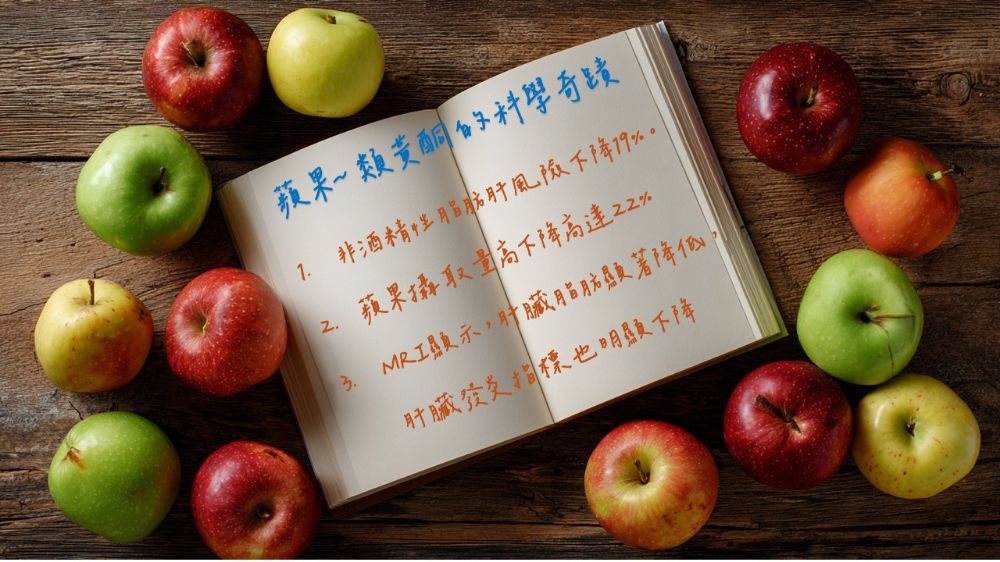 蘋果~類黃酮的科學奇蹟
1. 非酒精性脂肪肝風險下降19%。
2. 蘋果攝取量高下降高達22%
3. MRI顯示,肝臟脂肪顯著降低,
肝臟發炎指標也明顯下降